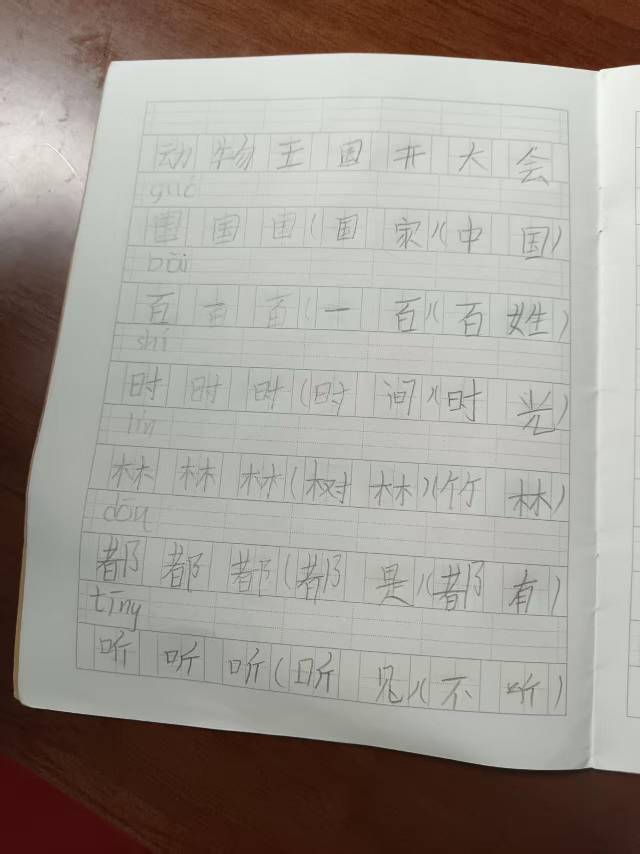 动物王国开大会
guó
国国国(国家)(中国)
bǎi
百百百(一百)(百姓)
shí
时时时(时间)(时光)
lín
林林林(树林)(竹林)
dōu
都都都(都是)(都有)
tīng
听听听(听见)(不听)